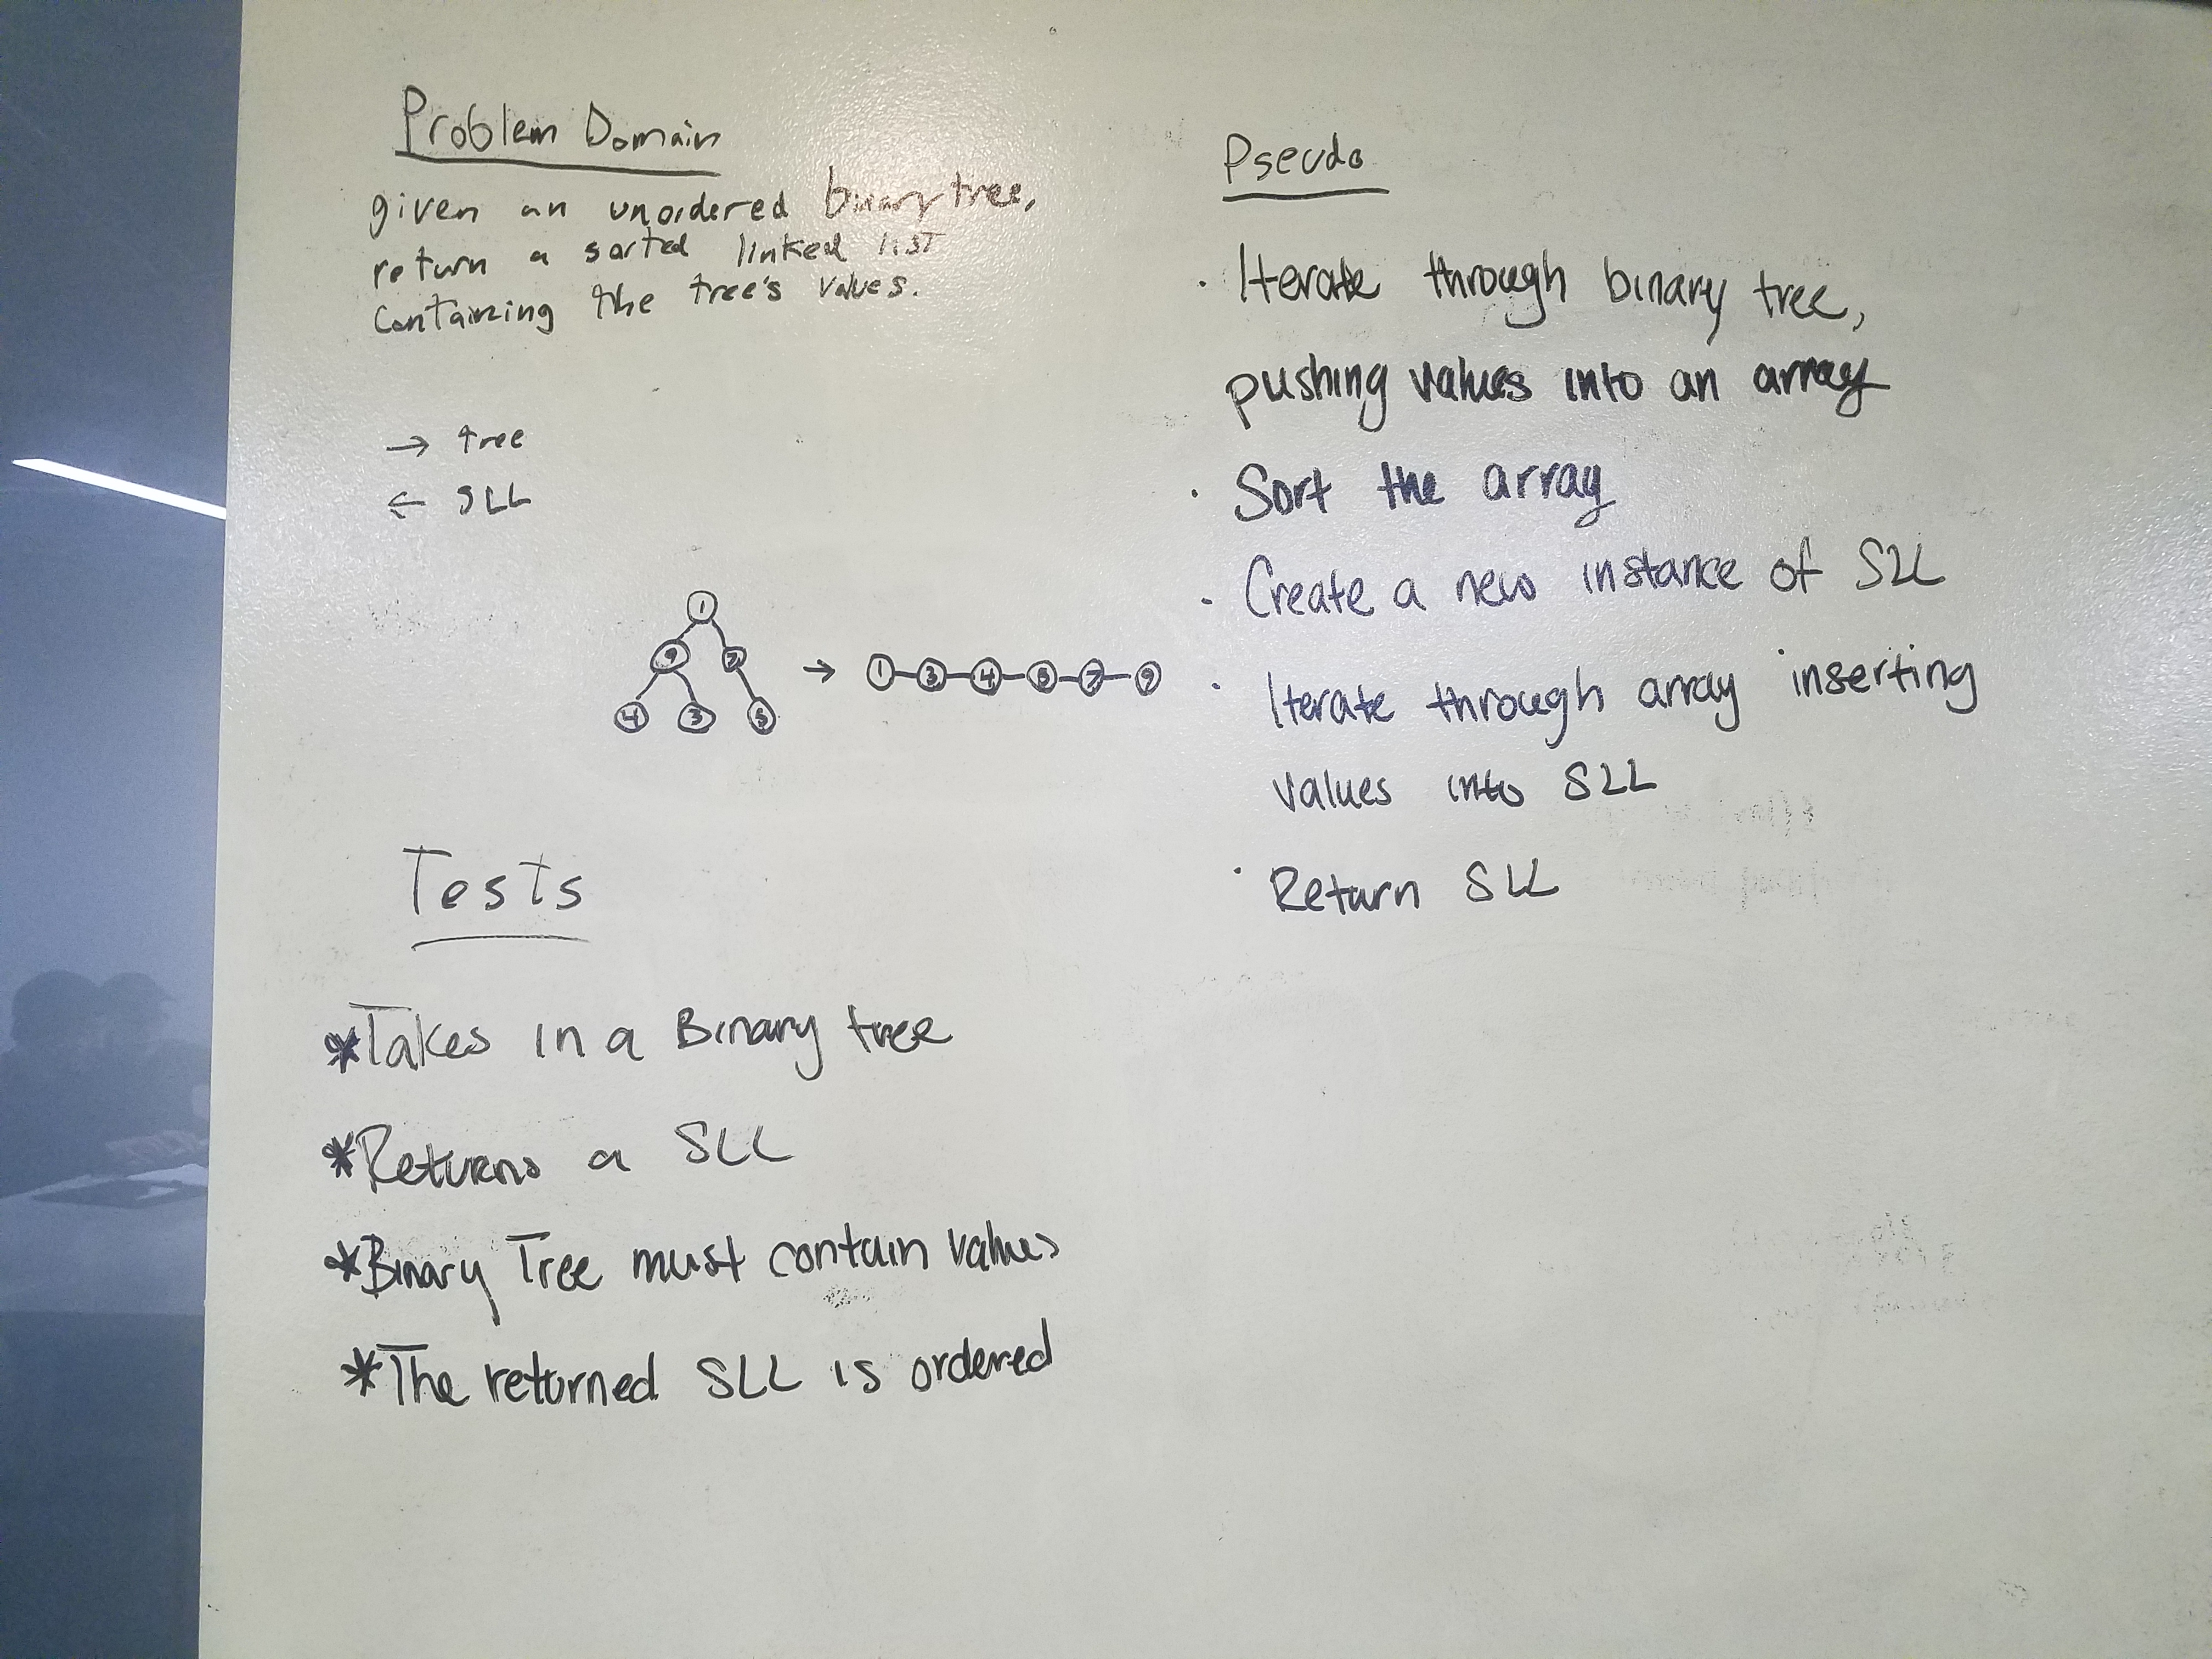 Problem Domain
given an unordered binary tree,
return a sorted linked list
containing the tree's values.
→ tree
← SLL
1
9 7
4 3 5
→ 1 3 4 5 7 9
Tests
*Takes in a Binary tree
*Returns a SLL
*Binary Tree must contain values
*The returned SLL is ordered
Pseudo
· Iterate through binary tree,
pushing values into an array
· Sort the array
· Create a new instance of SLL
· Iterate through array inserting
values into SLL
· Return SLL